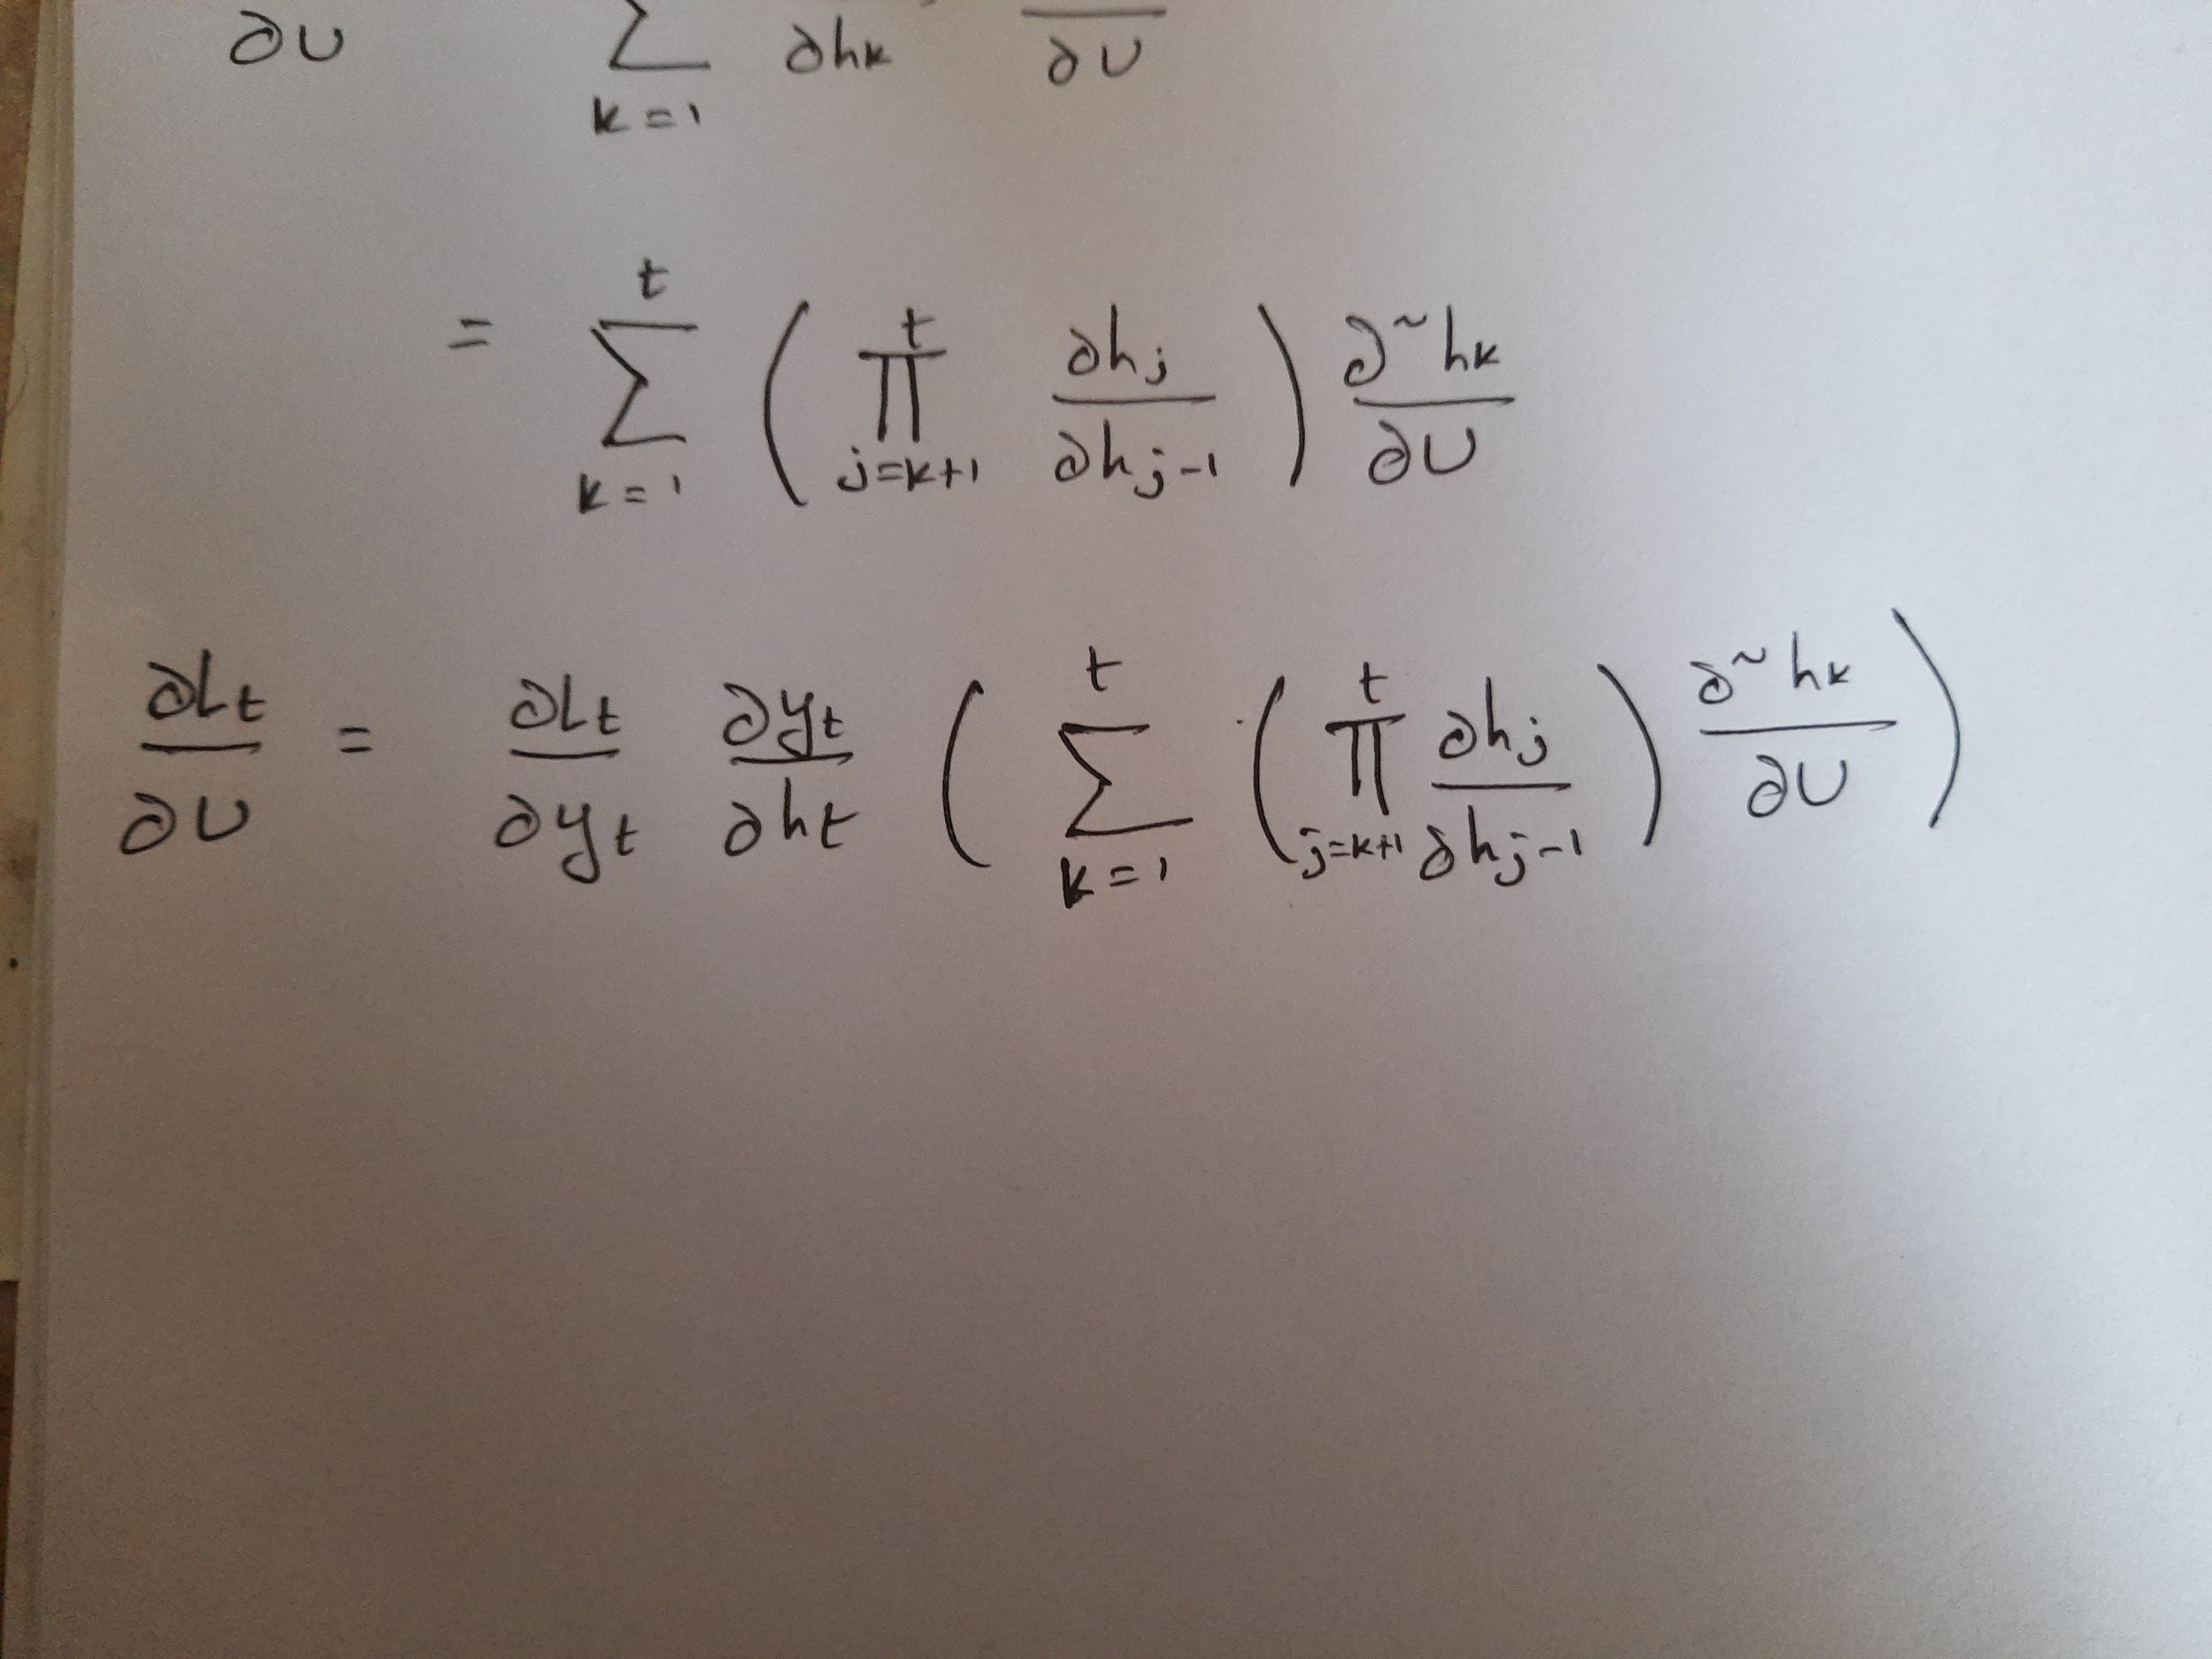 ∂U ∑_{k=1} ∂h_k ∂U
= ∑_{k=1}^{t} ( ∏_{j=k+1}^{t} ∂h_j/∂h_{j-1} ) ∂~h_k/∂U
∂L_t/∂U = ∂L_t/∂y_t ∂y_t/∂h_t ( ∑_{k=1}^{t} ( ∏_{j=k+1}^{t} ∂h_j/∂h_{j-1} ) ∂~h_k/∂U )